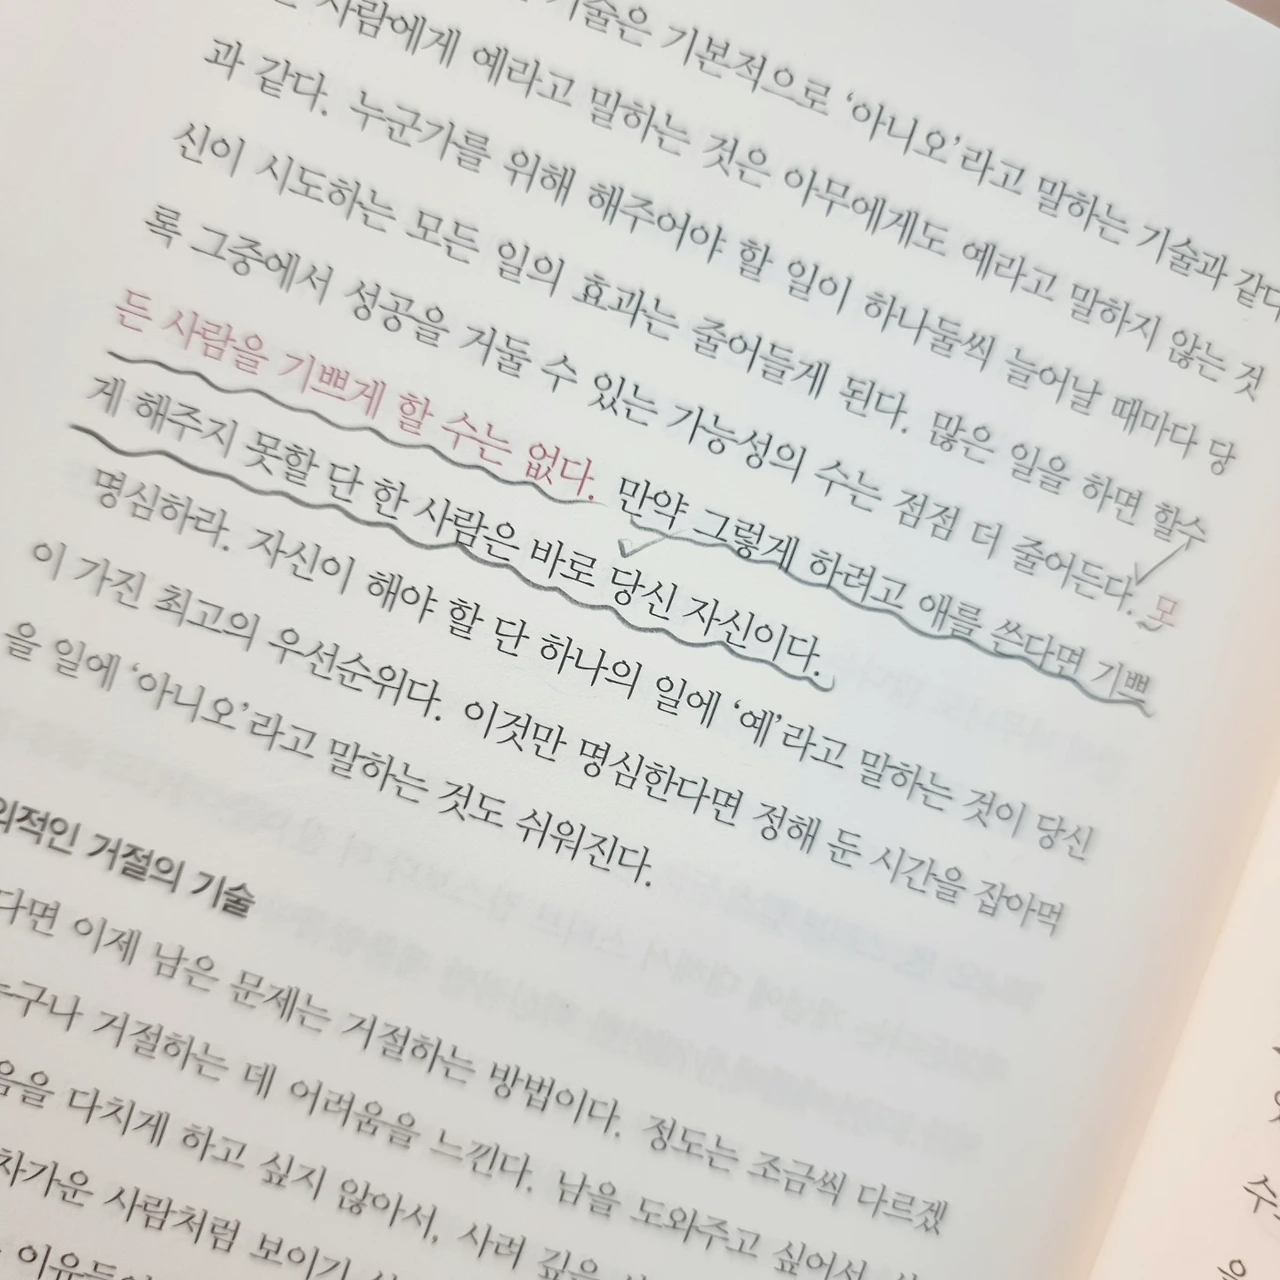 기술은 기본적으로 ‘아니오’라고 말하는 기술과 같다
사람에게 예라고 말하는 것은 아무에게도 예라고 말하지 않는 것
과 같다. 누군가를 위해 해주어야 할 일이 하나둘씩 늘어날 때마다 당
신이 시도하는 모든 일의 효과는 줄어들게 된다. 많은 일을 하면 할수
록 그중에서 성공을 거둘 수 있는 가능성의 수는 점점 더 줄어든다. 모
든 사람을 기쁘게 할 수는 없다. 만약 그렇게 하려고 애를 쓴다면 기쁘
게 해주지 못할 단 한 사람은 바로 당신 자신이다.
명심하라. 자신이 해야 할 단 하나의 일에 ‘예’라고 말하는 것이 당신
이 가진 최고의 우선순위다. 이것만 명심한다면 정해 둔 시간을 잡아먹
을 일에 ‘아니오’라고 말하는 것도 쉬워진다.
의적인 거절의 기술
다면 이제 남은 문제는 거절하는 방법이다. 정도는 조금씩 다르겠
누구나 거절하는 데 어려움을 느낀다. 남을 도와주고 싶어서,
음을 다치게 하고 싶지 않아서, 사려 깊은
차가운 사람처럼 보이기